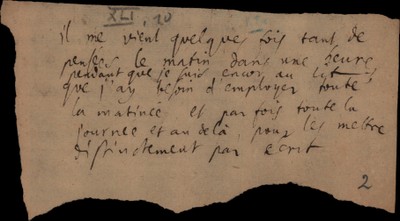 XLI, 10
il me vient quelques fois tant de
pensées le matin dans une heure
pendant que je suis encor au lit
que j'ay besoin d'employer toute
la matinée et par fois toute la
journee et au delà, pour les mettre
distinctement par ecrit
2